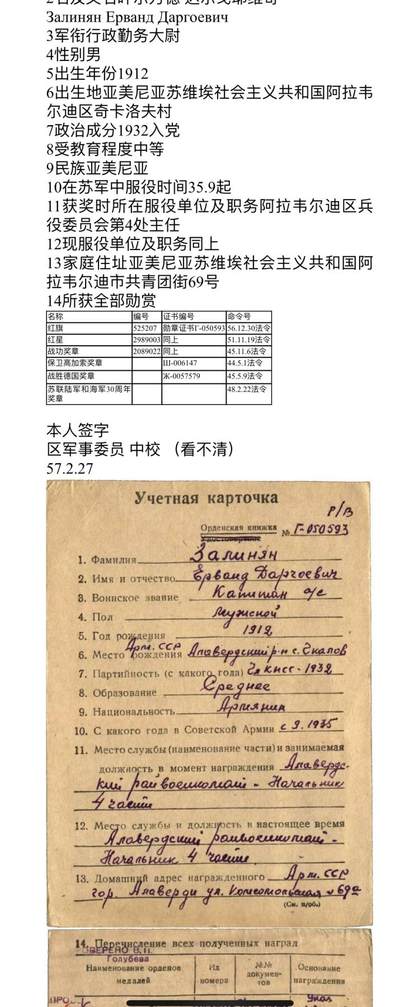 Залинян Ерванд Даргоевич
3军衔行政勤务大尉
4性别男
5出生年份1912
6出生地亚美尼亚苏维埃社会主义共和国阿拉韦
尔迪区奇卡洛夫村
7政治成分1932入党
8受教育程度中等
9民族亚美尼亚
10在苏军中服役时间35.9起
11获奖时所在服役单位及职务阿拉韦尔迪区兵
役委员会第4处主任
12现服役单位及职务同上
13家庭住址亚美尼亚苏维埃社会主义共和国阿
拉韦尔迪市共青团街69号
14所获全部勋赏
名称 编号 证书编号 命令号
红旗 525207 勋章证书Г-050593 56.12.30法令
红星 2989003 同上 51.11.19法令
战功奖章 2089022 同上 45.11.6法令
保卫高加索奖章 Ш-006147 44.5.1法令
战胜德国奖章 Ж-0057579 45.5.9法令
苏联陆军和海军30周年 48.2.22法令
奖章
本人签字
区军事委员 中校 （看不清）
57.2.27
Учетная карточка
Р/В
Орденская книжка № Г-050593
1. Фамилия Залинян
2. Имя и отчество Ерванд Даргоевич
3. Воинское звание Капитан а/с
4. Пол мужской
5. Год рождения 1912
6. Место рождения Арм. ССР Алавердский р-н с. Чкалов
7. Партийность (с какого года) Чл КПСС - 1932
8. Образование Среднее
9. Национальность Армянин
10. С какого года в Советской Армии с 9. 1935
11. Место службы (наименование части) и занимаемая
должность в момент награждения Алаверд-
ский райвоенкомат - Начальник
4 части
12. Место службы и должность в настоящее время
Алавердский райвоенкомат -
Начальник 4 части
13. Домашний адрес награжденного Арм. ССР
гор. Алаверди ул. Комсомольская 69а
(См. н/об.)
14. Перечисление всех полученных наград
Голубева
Наименование орденов
медалей
№№
номера
№№
докумен-
тов
Основание
награждения
Указ